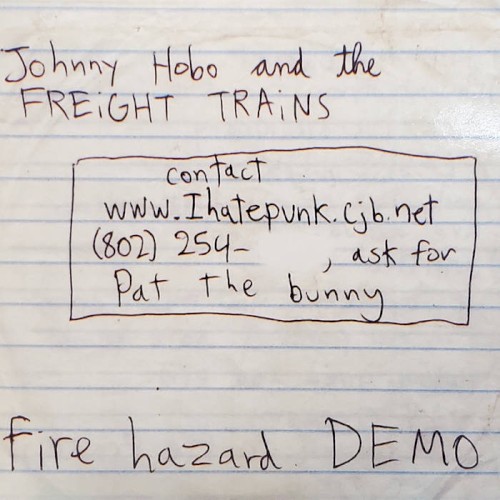 Johnny Hobo and the
FREiGHT TRAiNS
contact
www.Ihatepunk.cjb.net
(802) 254-      , ask for
Pat the bunny
fire hazard. DEMO